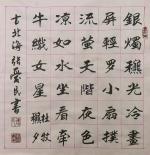 銀燭穐光冷畫
屏輕羅小扇撲
流螢天階夜色
凉如水坐看牽
牛織女星 杜牧
古北海張民書